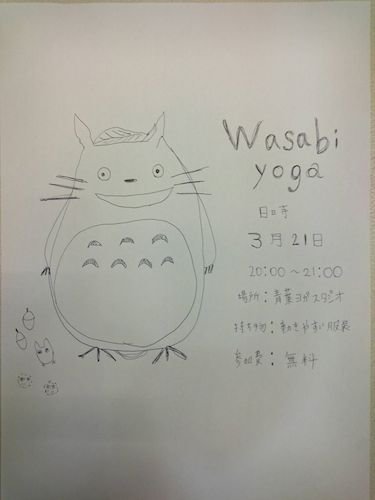 Wasabi
yoga
日時
3月21日
20:00～21:00
場所：青葉ヨガスタジオ
持ち物：動きやすい服装
参加費：無料